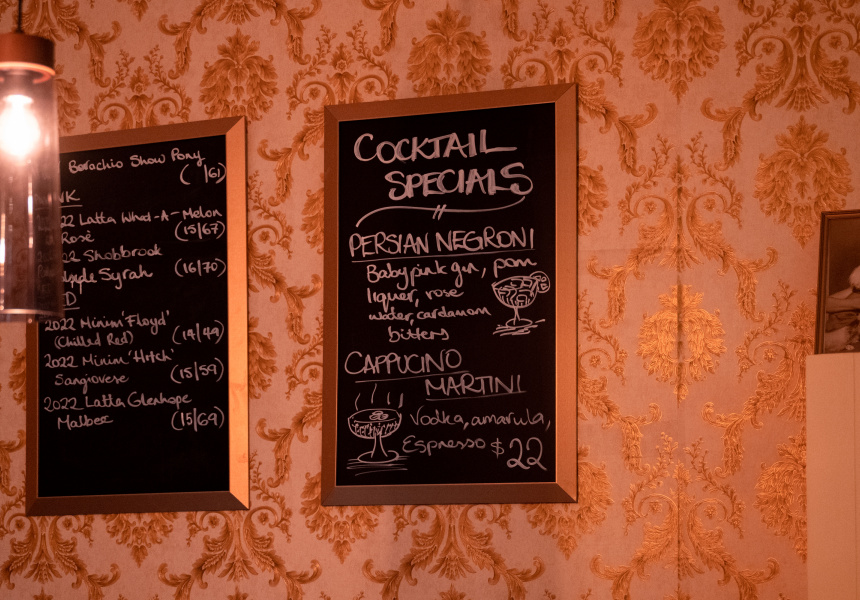 Borachio Show Pony
( /61)
NK
22 Latta Whad-A-Melon
Rosè (15/67)
22 Shobbrook
Syrah (16/70)
D
2022 Minim 'Floyd'
(Chilled Red) (14/49)
2022 Minim 'Hitch'
Sangiovese (15/59)
2022 Latta Glenhope
Malbec (15/69)
COCKTAIL
SPECIALS
PERSIAN NEGRONI
Baby pink gin, pom
liquer, rose
water, cardamom
bitters
CAPPUCINO
MARTINI
Vodka, amarula,
Espresso $22